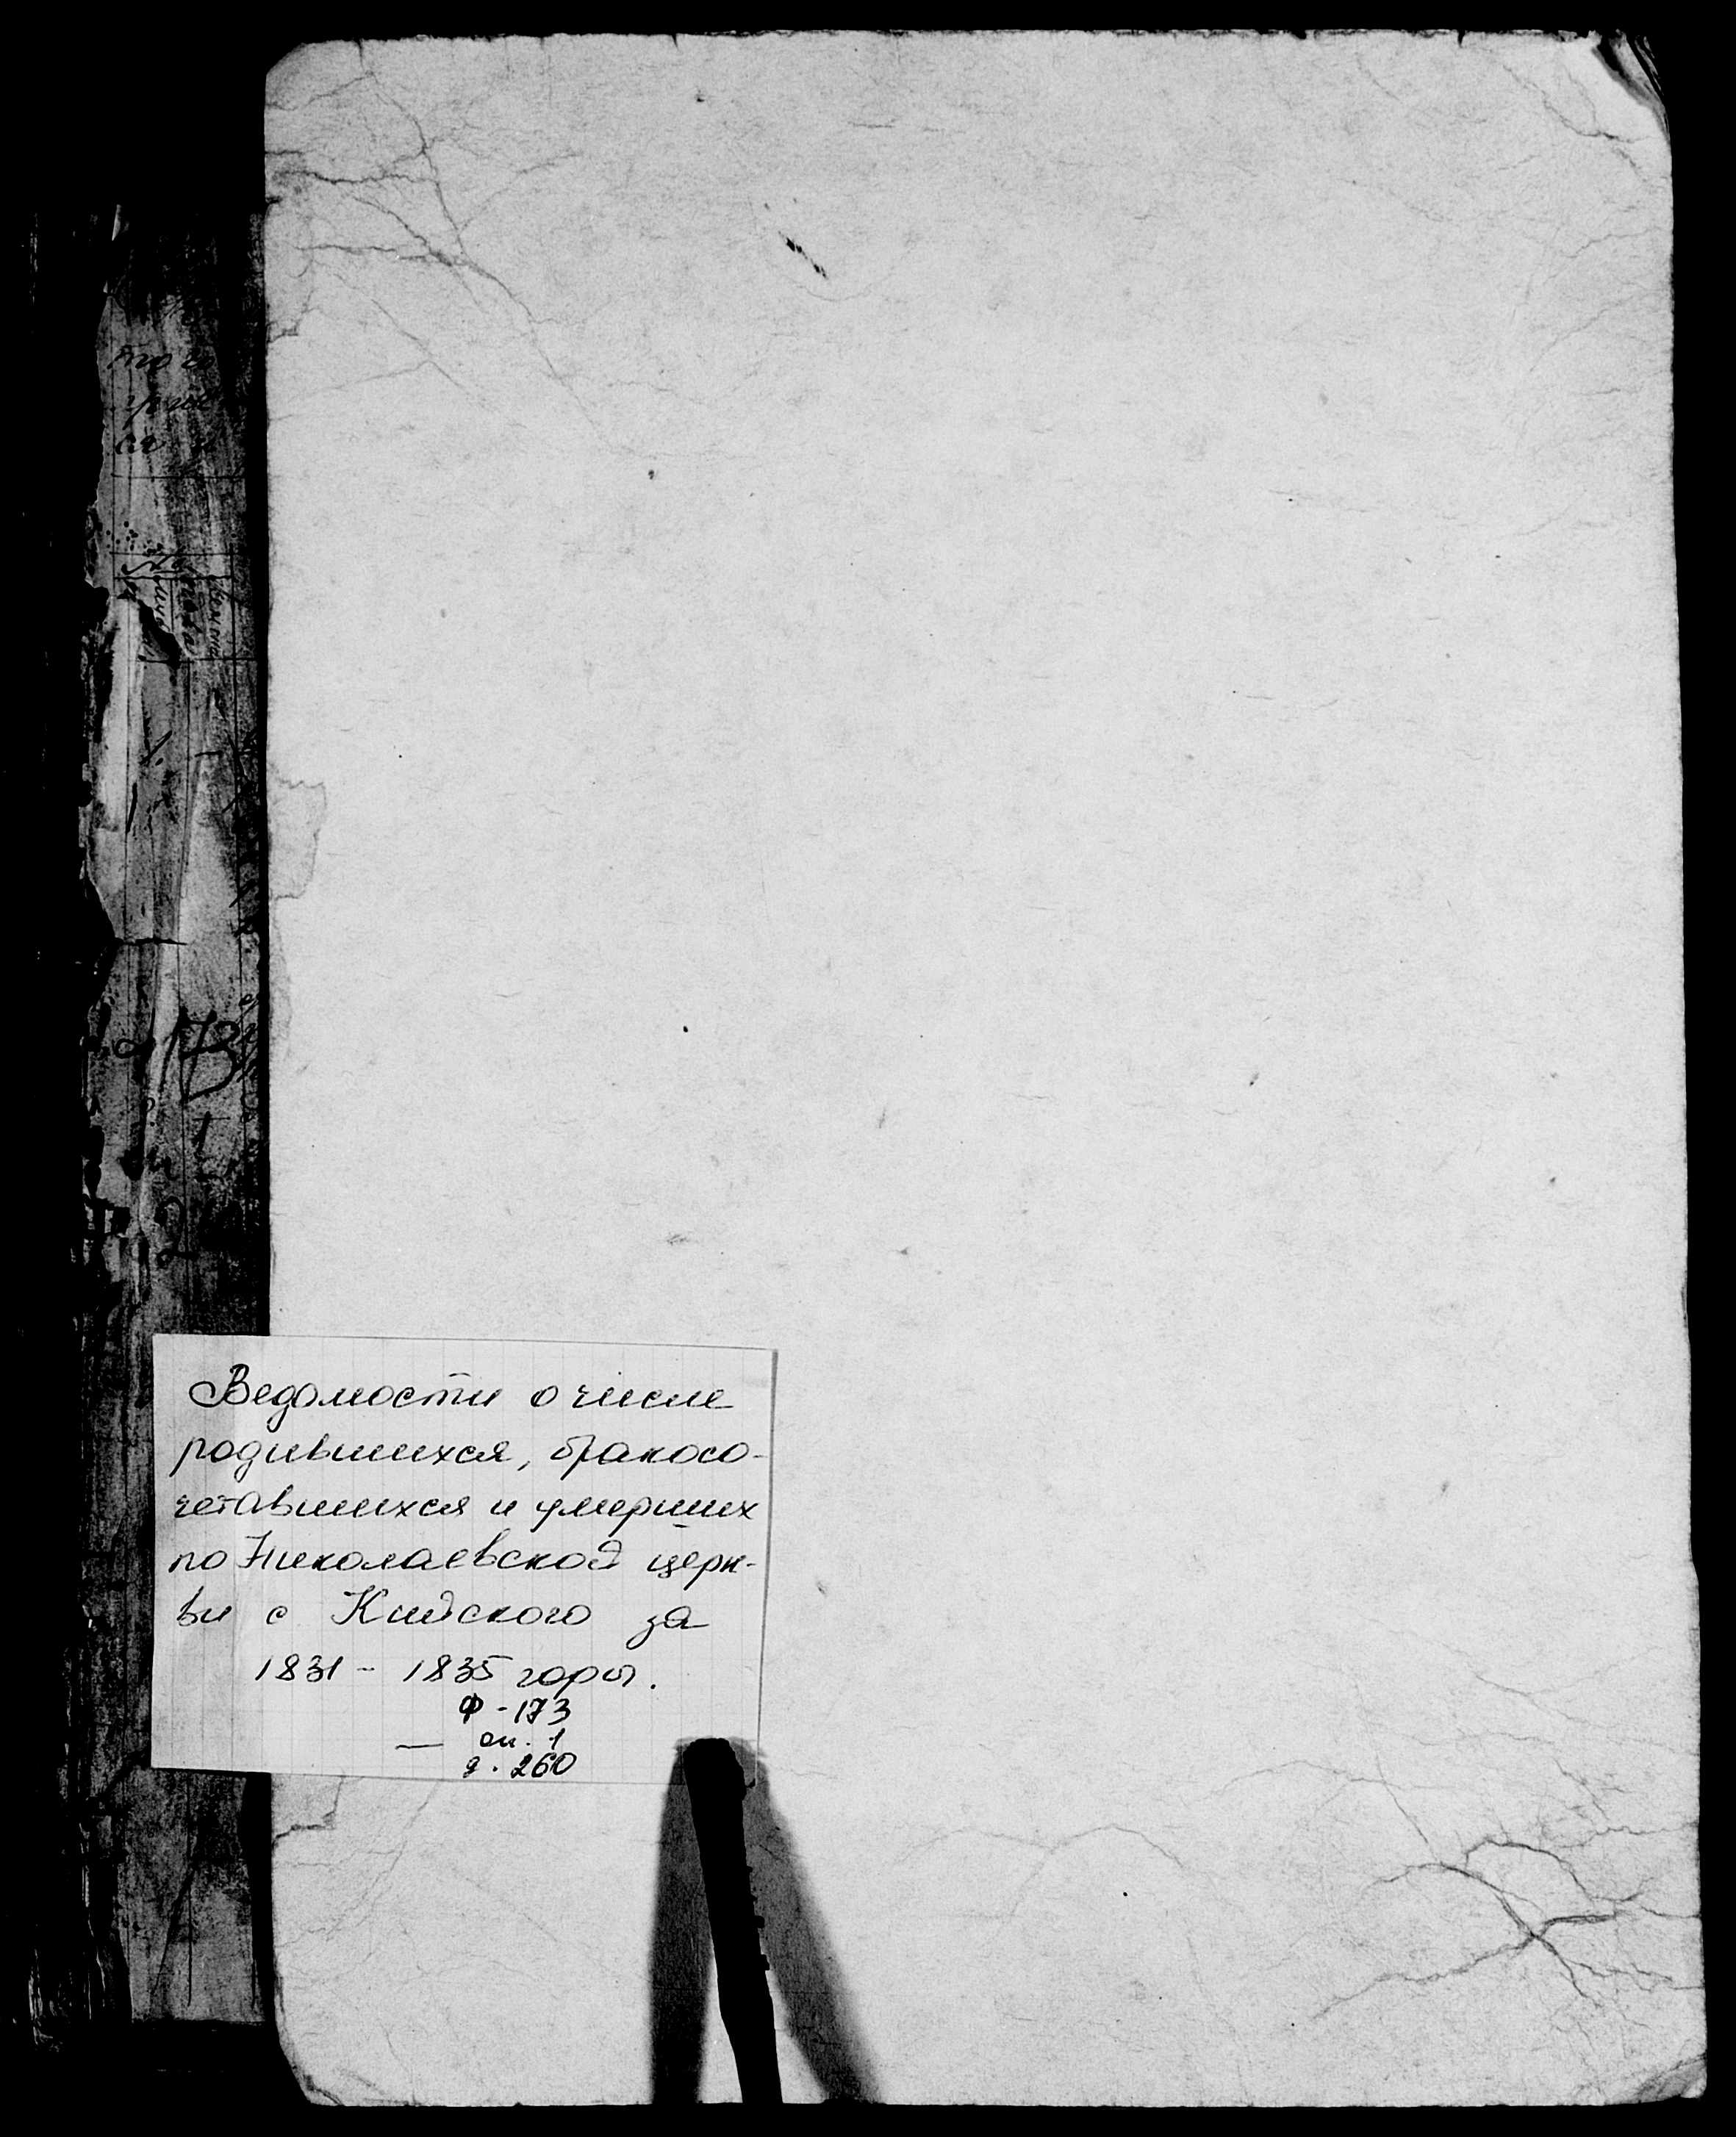 Ведомости о числе
родившихся, бракосо-
четавшихся и умерших
по Николаевской церк-
ви с Кийского за
1831 - 1835 годы.
Ф - 173
оп. 1
д. 260